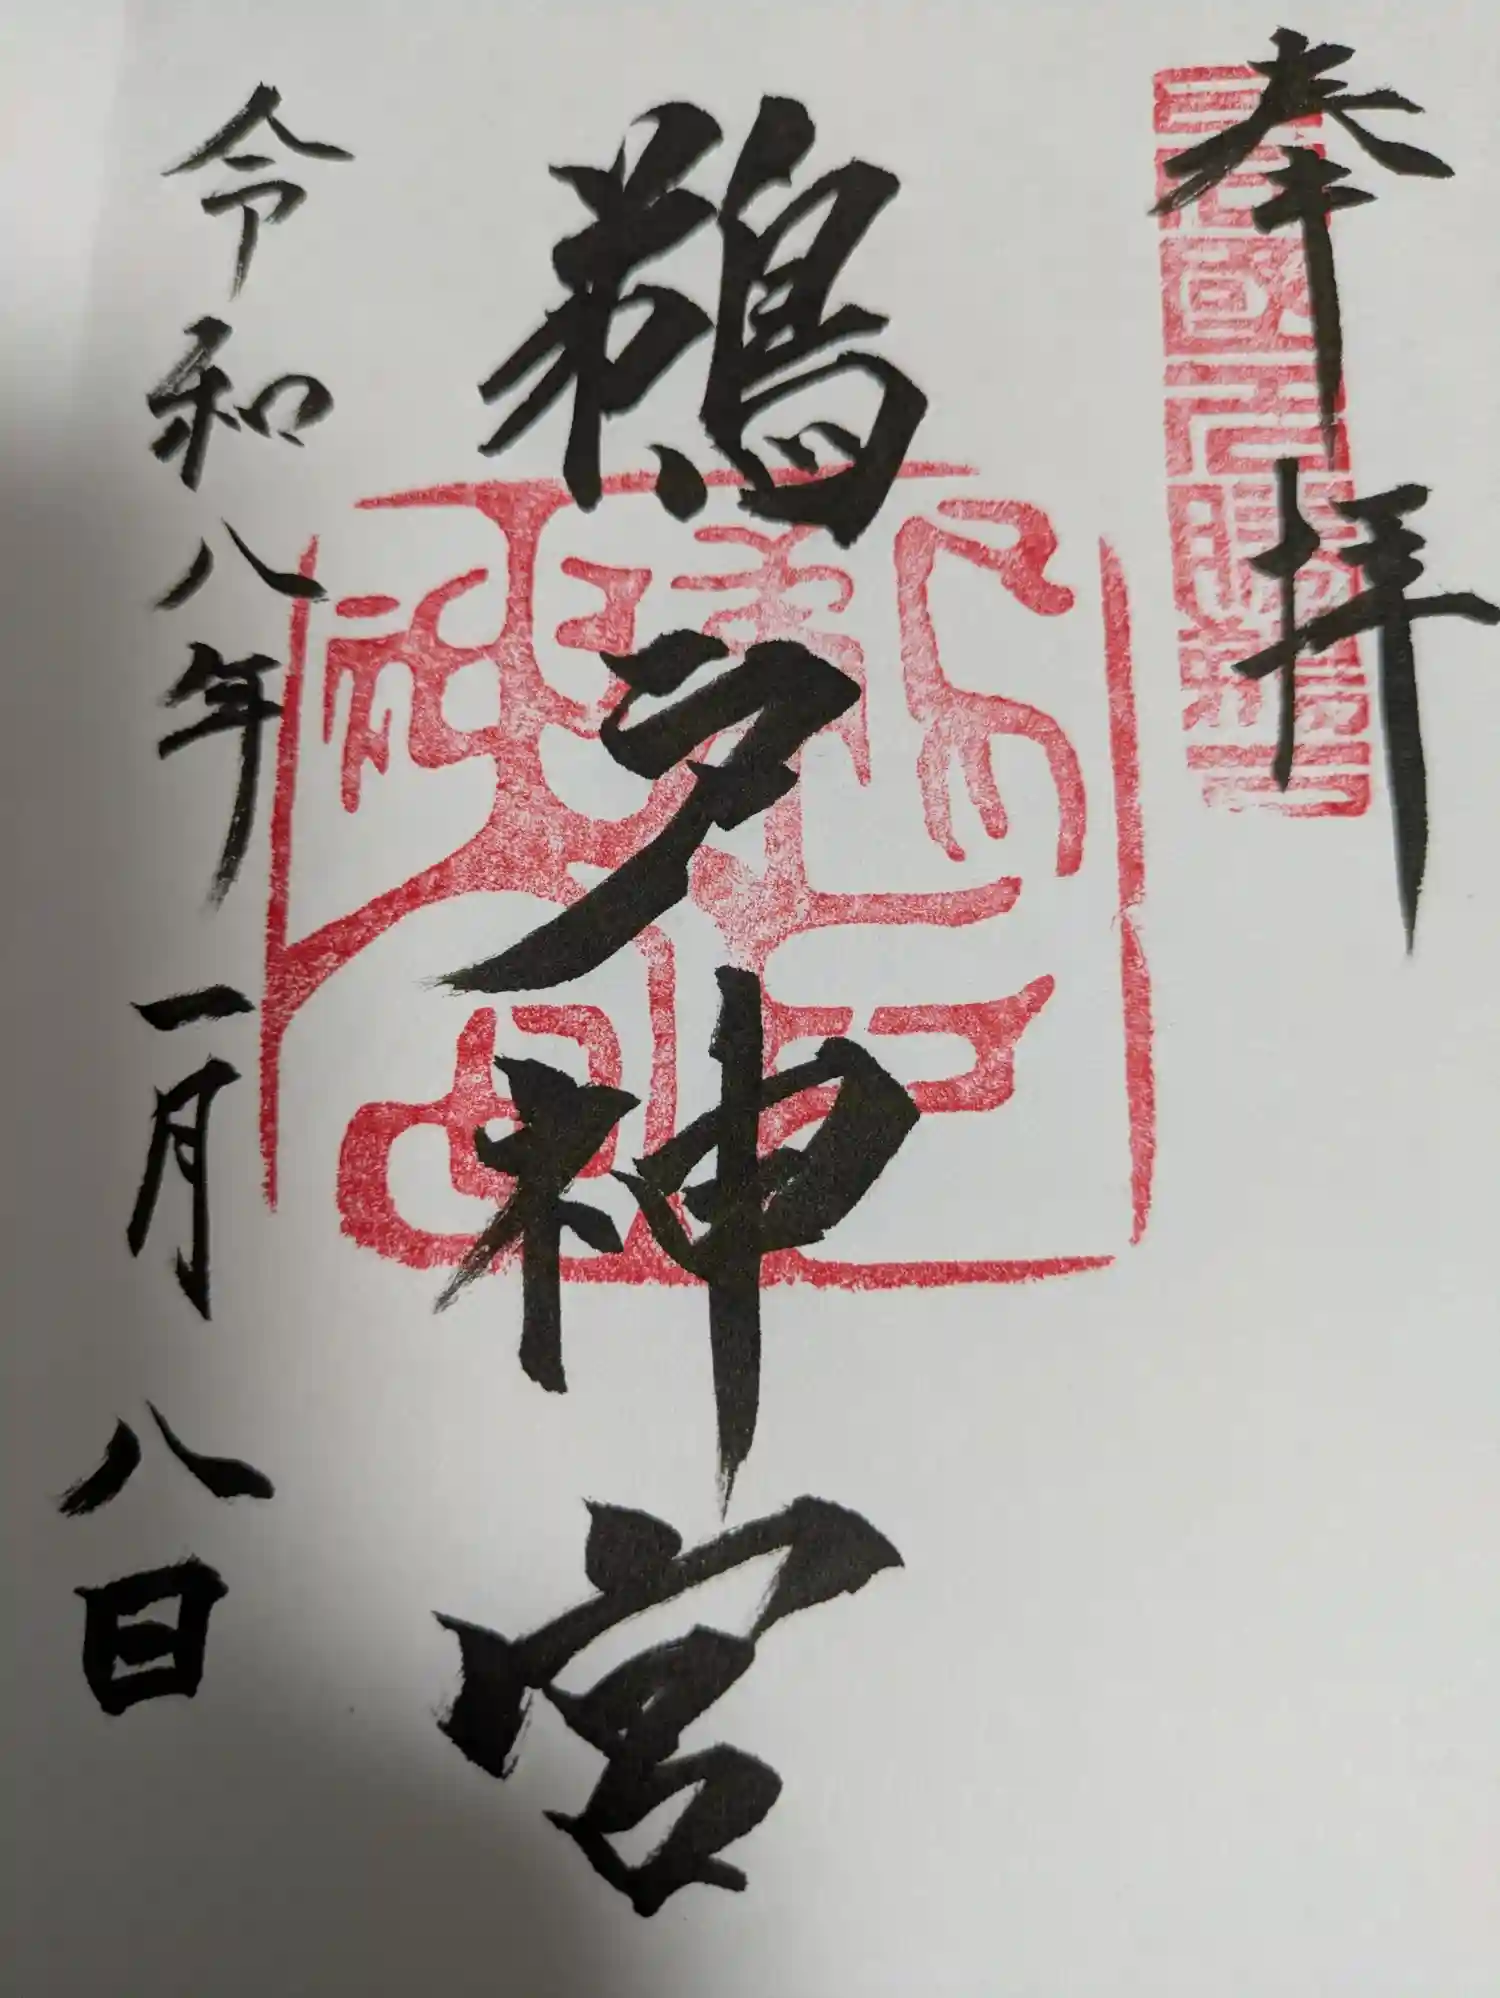 奉拝
鵜戸神宮
令和八年一月八日